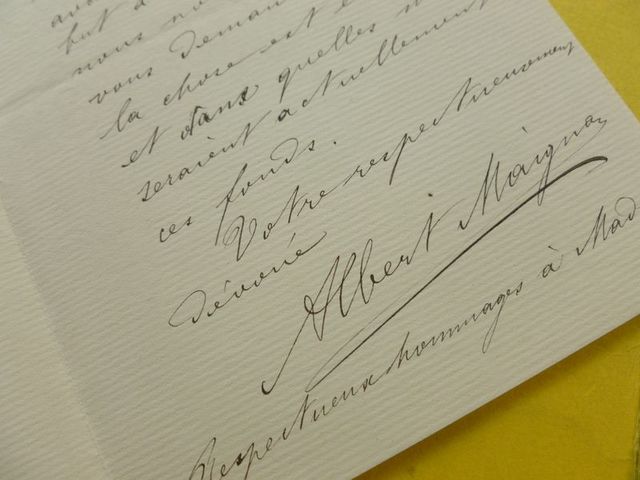 avo
but d
nous no
vous deman
la chose est
et dans quelles
seraient actuellement
ces fonds.
Votre respectueusement
dévoué
Albert Maignan
Respectueux hommages à Mad